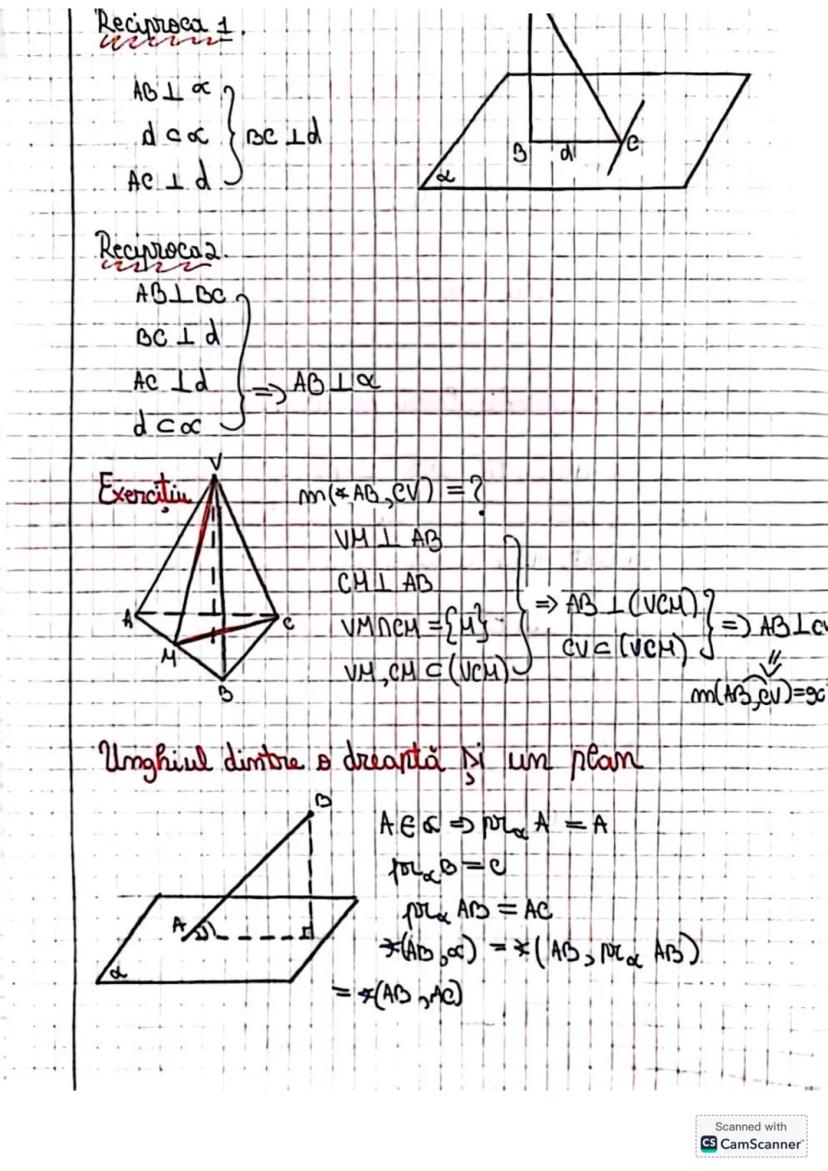 Reciproca 1.
AB ⊥ α
d ⊂ α } BC ⊥ d
AC ⊥ d
B d C
α
Reciproca 2.
AB ⊥ BC
BC ⊥ d
AC ⊥ d } => AB ⊥ α
d ⊂ α
Exercițiu
V
A
M
B
C
m(∢ AB, CV) = ?
VM ⊥ AB
CM ⊥ AB
VM ∩ CM = {M}
VM, CM ⊂ (VCM)
=> AB ⊥ (VCM)
CV ⊂ (VCM)
=> AB ⊥ CV
m(AB, CV) = 90
Unghiul dintre o dreaptă și un plan
B
A
α
A ∈ α => pr_α A = A
pr_α B = C
pr_α AB = AC
∢(AB, α) = ∢(AB, pr_α AB)
= ∢(AB, AC)
Scanned with
CS CamScanner